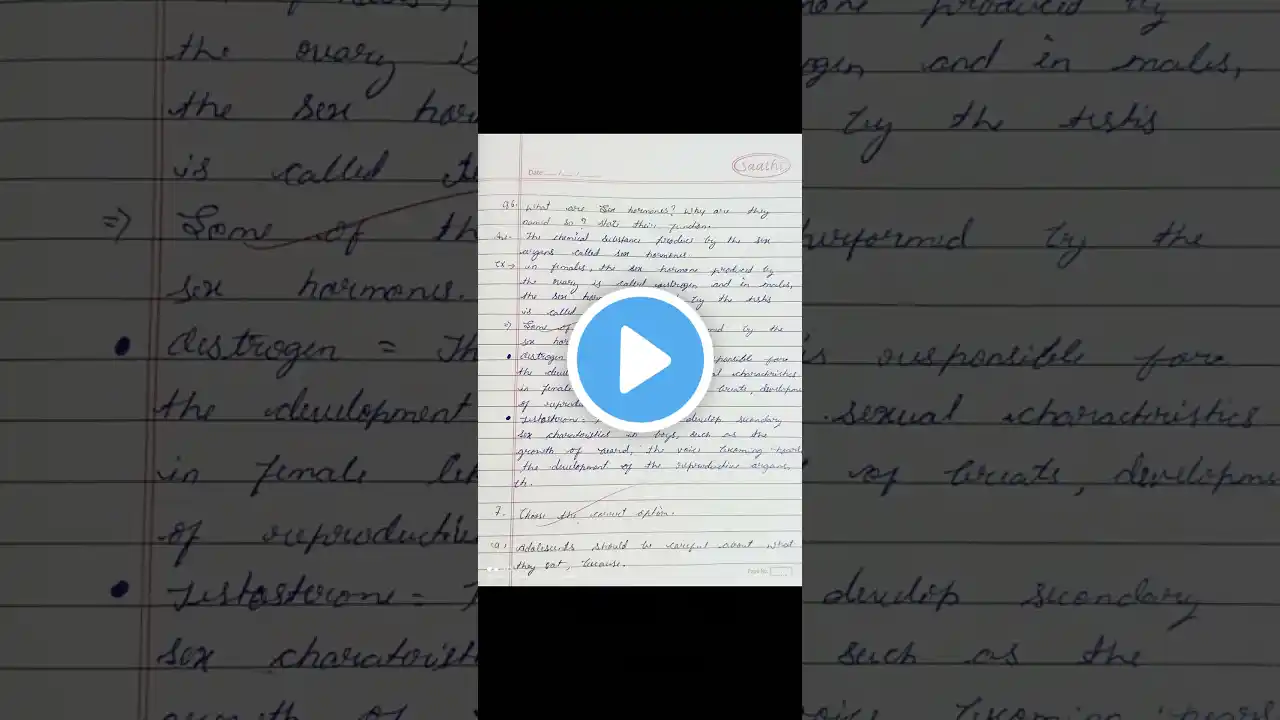 saathi
Date
Q6. What are Sex hormones? Why are they
named so? State their function.
Ans- The chemical substance produce by the sex
organs called sex hormones.
Ex → in females, the sex hormone produced by
the ovary is called oestrogen and in males,
the sex hor by the testis
is called
=> Some of the performed by the
sex hormones.
• Oestrogen = Th is responsible fore
the development sexual characteristics
in female of breats, developmen
of reproductive
• Testosterone = develop secondary
sex charatorist in boys, such as the
growth of beard, the voice becoming
the development of the reproductive organs,
th.
7. Choose the correct option.
a) Adolescents should be careful about what
they eat, because.
Page No.